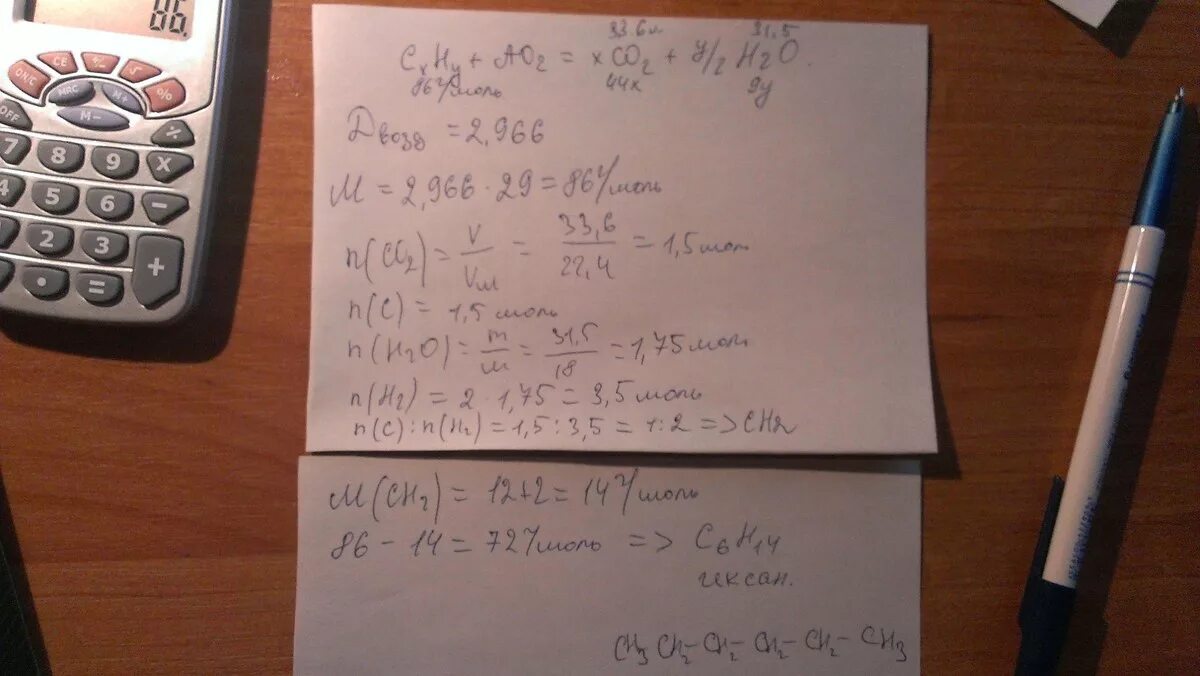 86.
CE
+/-
√
%
ON/C
MRC
M+
M-
OFF
÷
7 8 9 ×
4 5 6 −
1 2 3
. = +
33.6л 31,5
CxHy + AO2 = xCO2 + y/2 H2O.
86г/моль 44x 9y
Двозд = 2,966
M = 2,966 · 29 = 86г/моль
n(CO2) = V/Vм = 33,6/22,4 = 1,5моль
n(C) = 1,5 моль
n(H2O) = m/м = 31,5/18 = 1,75моль
n(H2) = 2 · 1,75 = 3,5моль
n(C) : n(H2) = 1,5 : 3,5 = 1:2 => CH2
M(CH2) = 12+2 = 14г/моль
86 - 14 = 72г/моль => C6H14
гексан.
CH3 CH2- CH2- CH2- CH2- CH3